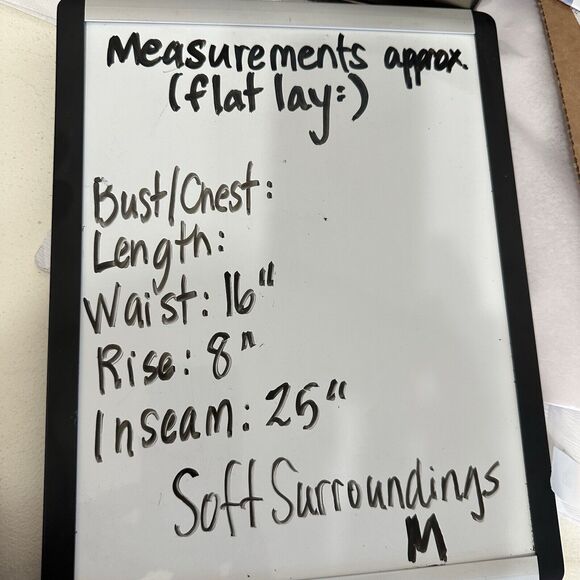 Measurements approx.
(flat lay:)
Bust/Chest:
Length:
Waist: 16"
Rise: 8"
Inseam: 25"
Soft Surroundings
M